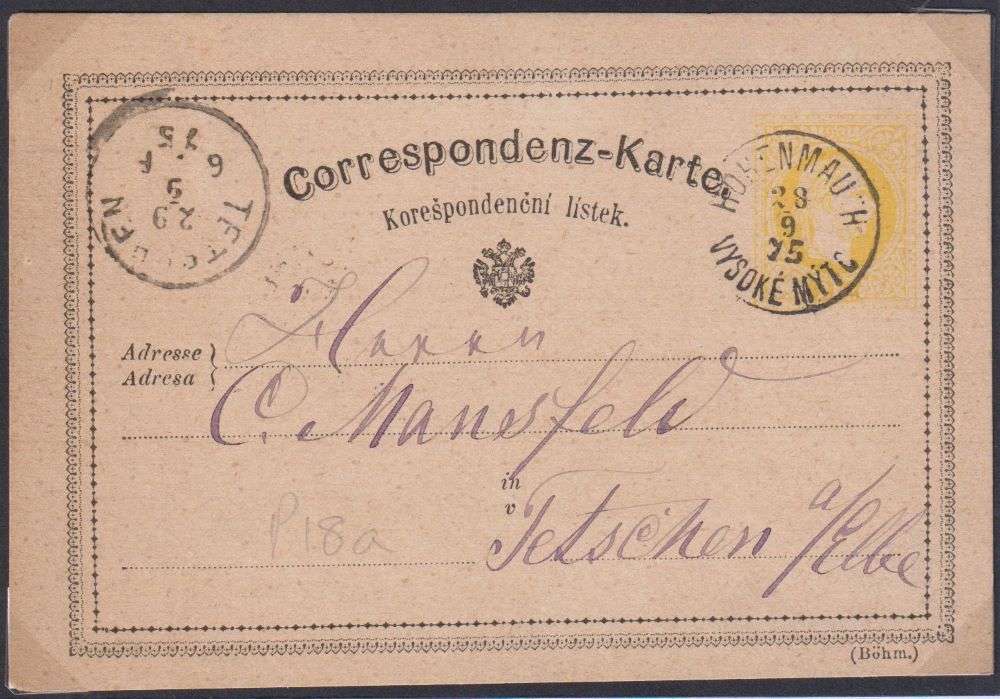 Correspondenz-Karte.
Korešpondenční lístek.
HOHENMAUTH
28
9
75
VYSOKÉ MÝTO
TETSCHEN
29
9
75
6
Adresse
Adresa
Herrn
C. Mansfeld
in
v
Tetschen a/Elbe
P18a
(Böhm.)